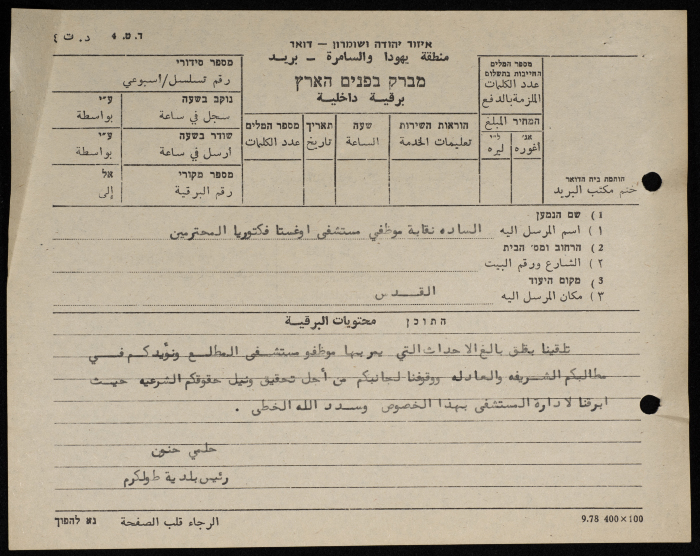 ד. ת ע
ד. ט. 4
איזור יהודה ושומרון - דואר
منطقة يهودا والسامرة - بريد
מברק בפנים הארץ
برقية داخلية
מספר סידורי
رقم تسلسل/اسبوعي
נוקב בשעה
سجل في ساعة
ע״י
بواسطة
שודר בשעה
ارسل في ساعة
ע״י
بواسطة
מספר מקורי
رقم البرقية
אל
إلى
מספר המלים
عدد الكلمات
תאריך
تاريخ
שעה
الساعة
הוראות השירות
تعليمات الخدمة
מספר המלים
החייבות בתשלום
عدد الكلمات
الملزمة بالدفع
המחיר المبلغ
ל״י
ليره
אג׳
اغوره
חותמת בית הדואר
ختم مكتب البريد
1 ) שם הנמען
١ ) اسم المرسل اليه الساده نقابة موظفي مستشفى اوغستا فكتوريا المحترمين
2 ) הרחוב ומס׳ הבית
٢ ) الشارع ورقم البيت
3 ) מקום היעוד
٣ ) مكان المرسل اليه القدس
התוכן محتويات البرقية
تلقينا بقلق بالغ الاحداث التي يمر بها موظفو مستشفى المطلع ونؤيدكم في
مطالبكم الشريفه والعادله ووقوفنا لجانبكم من أجل تحقيق ونيل حقوقكم الشرعيه حيث
ابرقنا لادارة المستشفى بهذا الخصوص وسدد الله الخطى .
حلمي حنون
رئيس بلدية طولكرم
נא להפוך
الرجاء قلب الصفحة
9.78 400×100